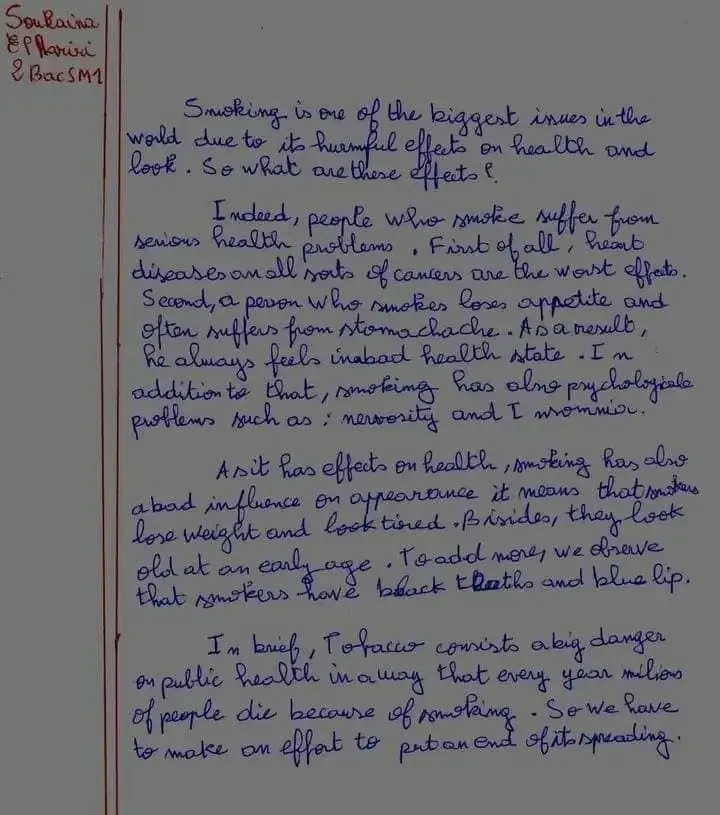 Soukaina
El Hariri
2 Bac SM1
Smoking is one of the biggest issues in the
world due to its hurmful effects on health and
look. So what are these effects?
Indeed, people who smoke suffer from
serious health problems. First of all, heart
diseases an all sorts of cancers are the worst effects.
Second, a person who smokes loses appetite and
often suffers from stomachache. As a result,
he always feels in a bad health state. In
addition to that, smoking has also psychologicale
problems such as : nervosity and Insomnia.
As it has effects on health, smoking has also
a bad influence on appearance it means that smokers
lose weight and look tired. Bisides, they look
old at an early age. To add more, we observe
that smokers have black teeths and blue lip.
In brief, Tobacco consists a big danger
on public health in a way that every year milions
of people die because of smoking. So we have
to make an effort to put an end of its spreading.